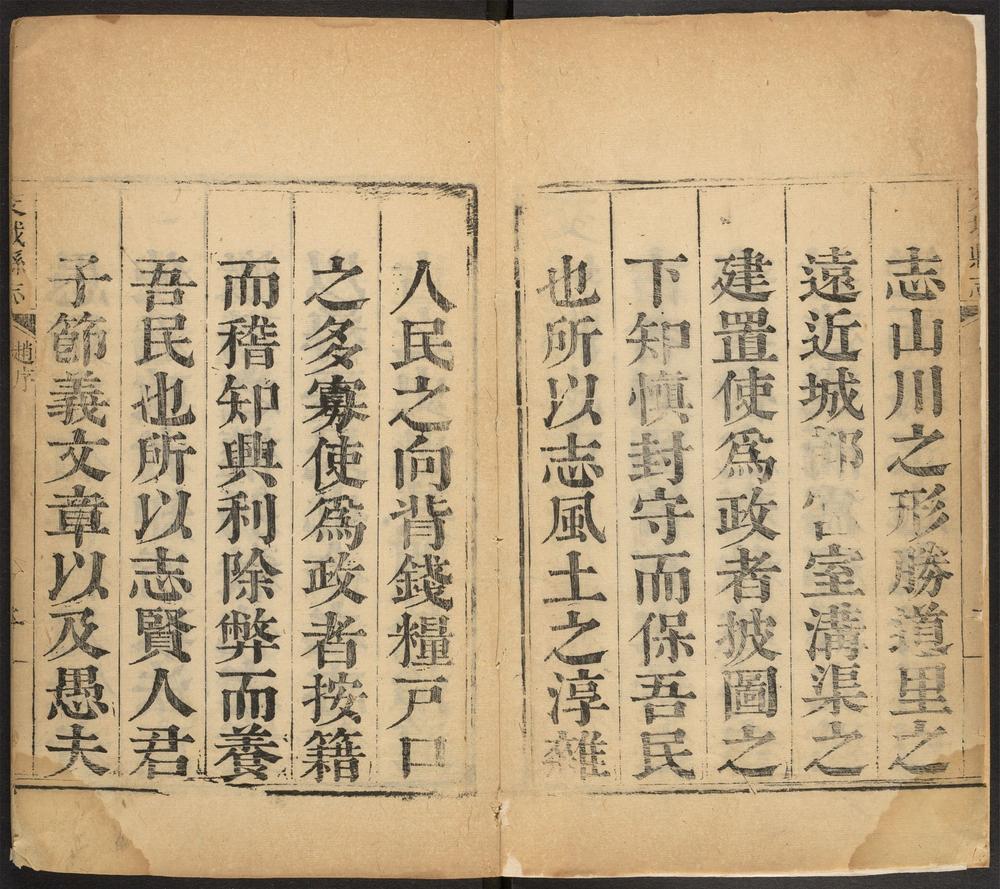 志山川之形勝道里之
遠近城郭宮室溝渠之
建置使爲政者披圖之
下知慎封守而保吾民
也所以志風土之淳雜
人民之向背錢糧戸口
之多寡使爲政者按籍
而稽知興利除弊而養
吾民也所以志賢人君
子節義文章以及愚夫
城縣志
趙序